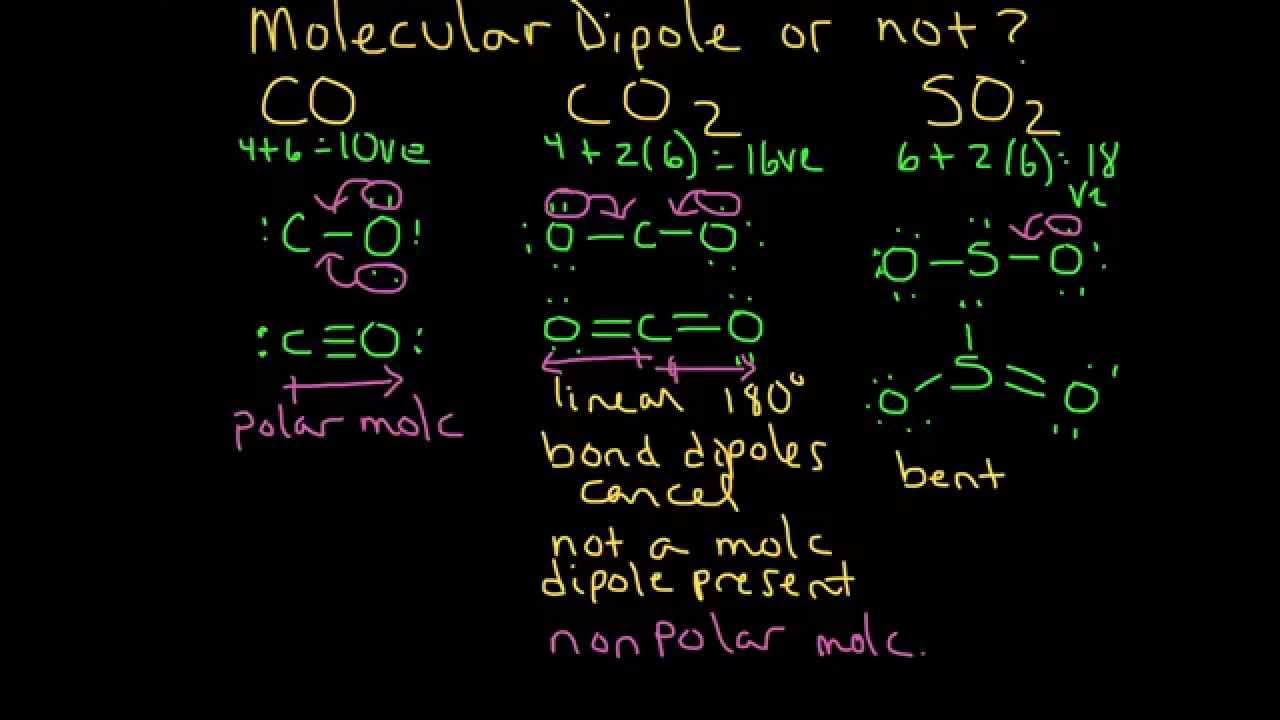 Molecular Dipole or not?
CO
4+6=10ve
:C-O:
:C≡O:
polar molc
CO2
4+2(6)=16ve
O-C-O
O=C=O
linear 180°
bond dipoles
cancel
not a molc
dipole present
nonpolar molc.
SO2
6+2(6)=18
ve
O-S-O
S
O O
bent